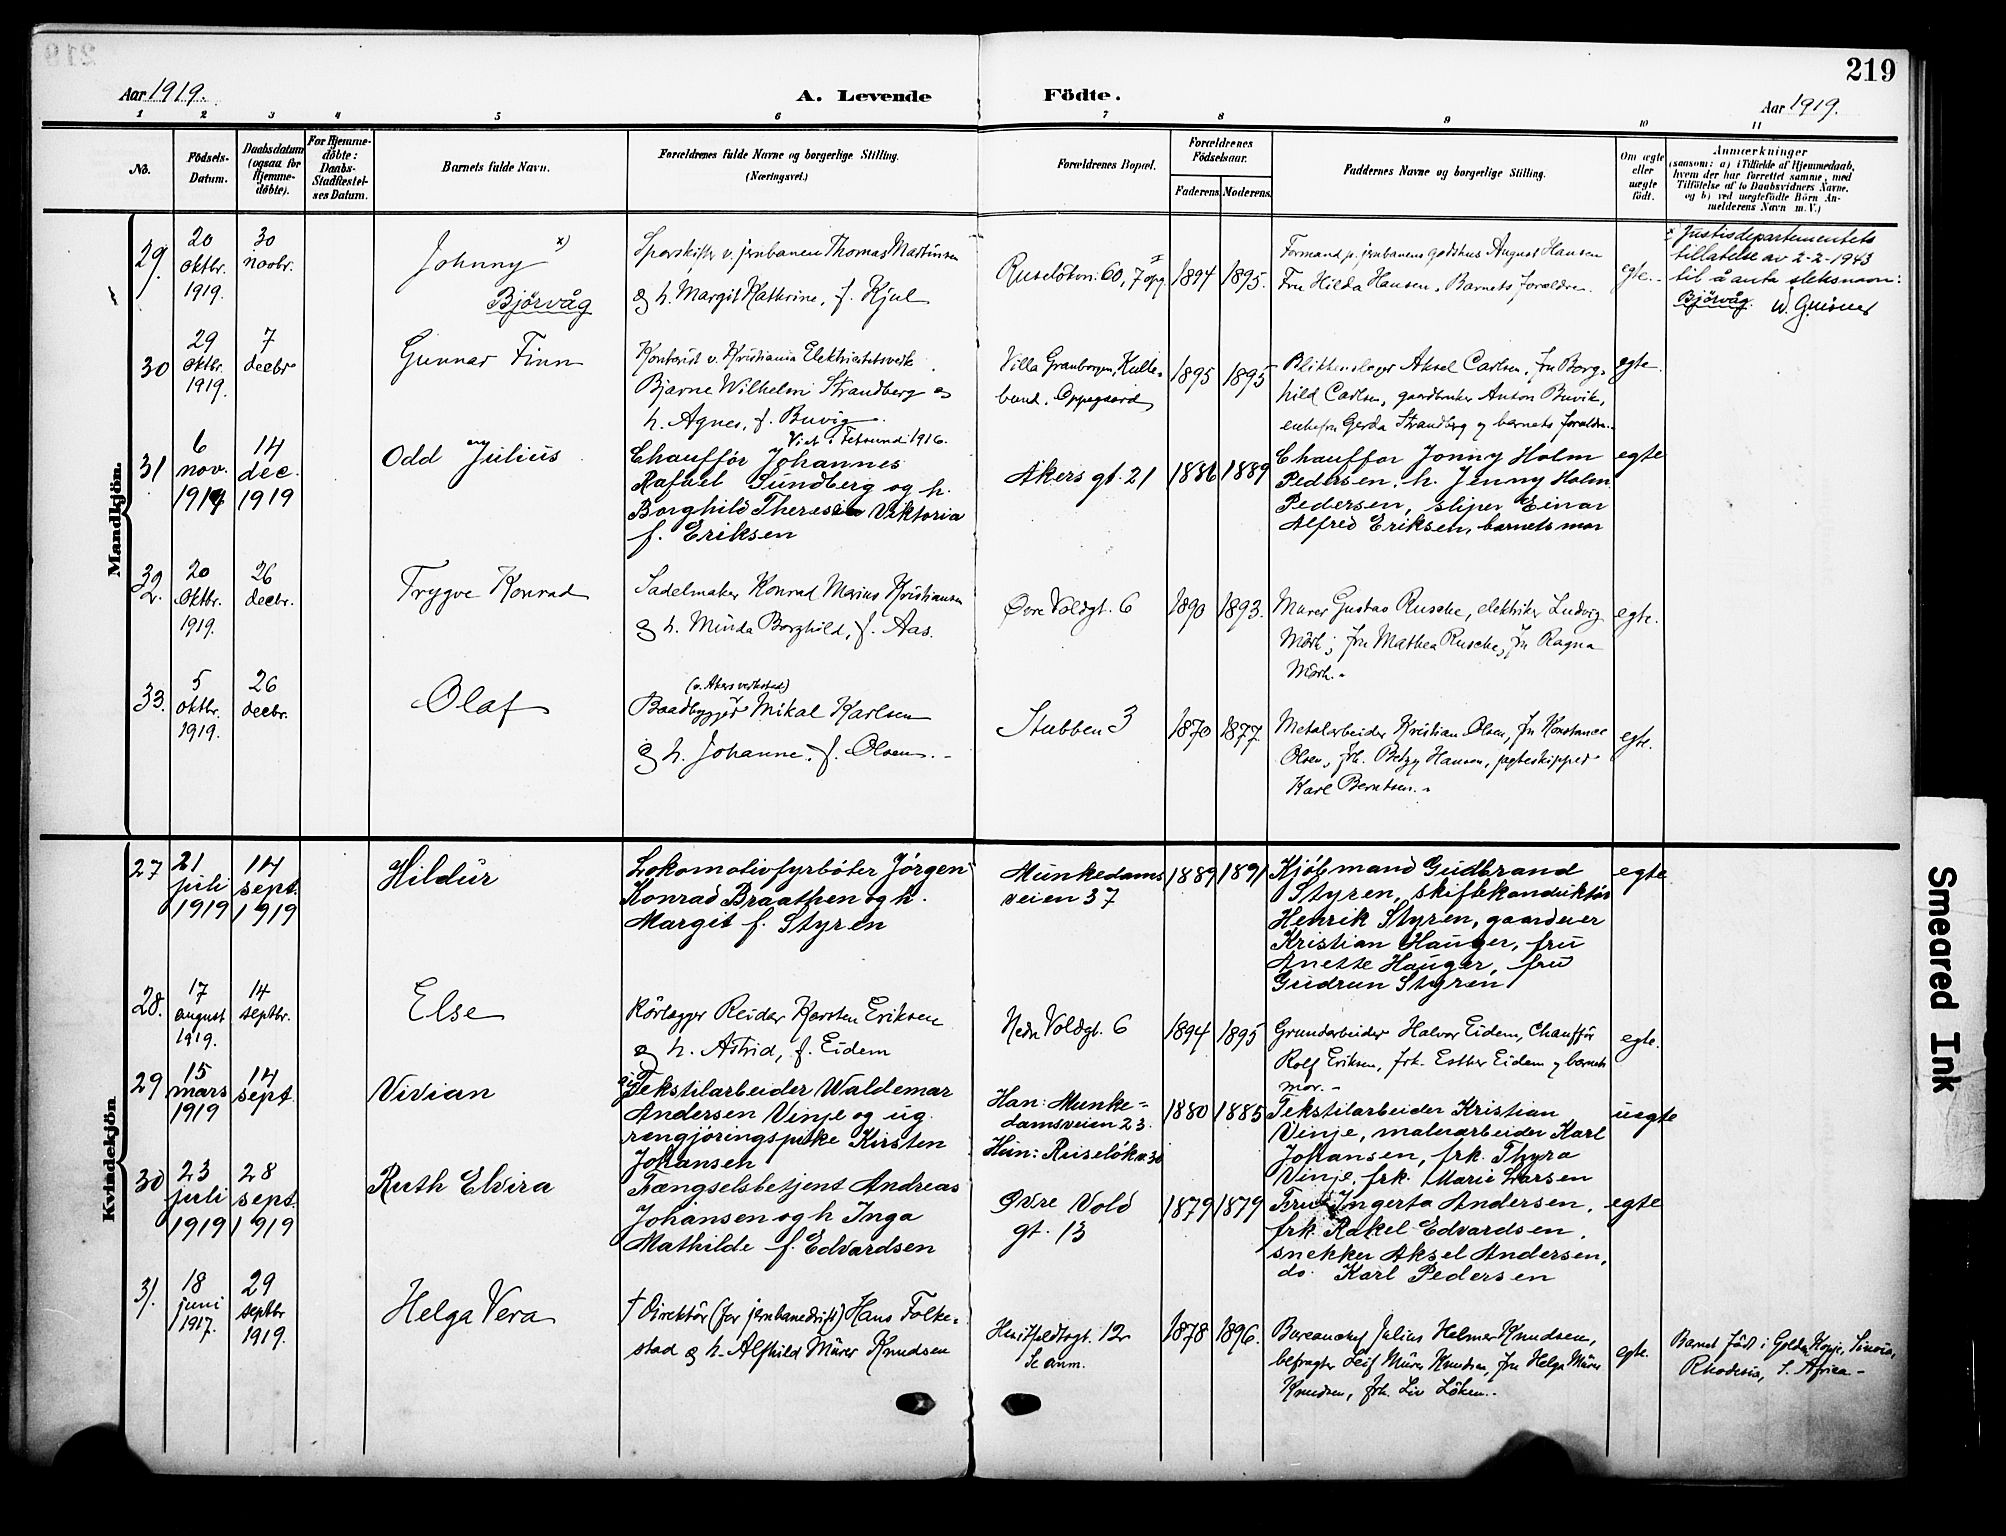 219
Aar 1919.
A. Levende Födte.
Aar 1919.
1 2 3 4 5 6 7 8 9 10 11
No.
Födsels-
Datum.
Daabsdatum
(ogsaa for
Hjemme-
døbte).
For Hjemme-
døbte:
Daabs-
Stadfæstel-
ses Datum.
Barnets fulde Navn.
Forældrenes fulde Navne og borgerlige Stilling.
(Næringsvei.)
Forældrenes Bopæl.
Forældrenes
Fødselsaar.
Faderens Moderens
Faddernes Navne og borgerlige Stilling.
Om ægte
eller
uægte
født.
Anmærkninger
(saasom: a) i Tilfælde af Hjemmedaab,
hvem der har forrettet samme, med
Tilføielse af to Daabsvidners Navne.
og b) ved uægtefødte Börn An-
melderens Navn m. V.)
Mandkjön.
29.
20
oktbr.
1919.
30
novbr.
Johnny x)
Björvåg
Sporskifter v. jernbanen Thomas Martinsen
og h. Margit Kathrine, f. Kjul
Ruseløkv: 60, 7 opg. I
1894
1895.
Formand p. jernbanens godshus August Hansen
Fru Hilda Hansen, Barnets forældre.
egte.
x Justisdepartementets
tillatelse av 2-2-1943
til å anta slektsnavn:
Björvåg.
30
29
oktbr.
1919.
7
decbr
Gunnar Finn
Kontorist v. Kristiania Elektricitetsverk
Bjarne Wilhelm Strandberg og
h. Agnes, f. Buvig
Villa Granborgen, Kulle-
bund. Oppegaard
1895
1895
Blikkenslager Aksel Carlsen, fru Borg-
hild Carlsen, gaardbruker Anton Buvik,
enkefru Gerda Strandberg og barnets forældre.
egte.
31
6
nov.
1914
14
dec.
1919
Odd Julius
Viet i Fetsund 1916.
Chauffør Johannes
Rafael Sundberg og h.
Borghild Theresia Viktoria
f. Eriksen
Akers gt. 21
1886
1889
Chauffør Jonny Holm
Pedersen, h. Jenny Holm
Pedersen, sliper Einar
Alfred Eriksen, barnets mor
egte
32.
20
Oktbr.
1919.
26
decbr.
Trygve Konrad
Sadelmaker Konrad Marius Kristiansen
og h. Minda Borghild, f. Aas.
Øvre Voldgt. 6
1890
1893.
Murer Gustav Rusche, elektriker Ludvig
Mörk; fru Mathea Rusche, fru Ragna
Mörk.
egte.
33.
5
oktbr.
1919.
26
decbr.
Olaf
(v. Akers verksted)
Baadbygger Mikal Karlsen
og h. Johanne, f. Olsen.
Stubben 3
1870
1877
Metalarbeider Kristian Olsen, fru Konstance
Olsen, frk. Betzy Hansen, jagteskipper
Karl Berntsen.
egte.
Kvindekjön
27
21
juli
1919
14
sept.
1919
Hildur
Lokomotivfyrbøter Jörgen
Konrad Braathen og h.
Margit f. Styren
Munkedams
veien 37
1889
1891
Kjöbmand Gudbrand
Styren, skiftekonduktör
Henrik Styren, gaardeier
Kristian Hauger, fru
Anette Hauger, fru
Gudrun Styren
egte
28.
17
august
1919.
14
septbr.
Else
Rörlægger Reidar Karsten Eriksen
og h. Astrid, f. Eidem
Nedre Voldgt. 6
1894
1895
Grundarbeider Halvor Eidem, Chauffør
Rolf Eriksen, frk. Esther Eidem og barnets
mor.
egte.
29
15
mars
1919
14
sept.
Vivian
Tekstilarbeider Waldemar
Andersen Vinje og ug.
rengjöringspike Kirsten
Johansen
Han: Munke-
damsveien 23.
Hun: Ruseløkv. 30
1880
1885
Tekstilarbeider Kristian
Vinje, malerarbeider Karl
Johansen, frk. Thyra
Vinje, frk. Marie Larsen
uegte
30
23
juli
1919
28
sept.
1919
Ruth Elvira
Fængselsbetjent Andreas
Johansen og h Inga
Mathilde f. Edvardsen
Øvre Vold
gt. 13
1879
1879
Fru Ingerta Andersen,
frk. Rakel Edvardsen,
snekker Aksel Andersen,
do. Karl Pedersen
egte
31.
18
juni
1917.
29
septbr
1919.
Helga Vera
† Direktör (for jernbanedrift) Hans Folke-
stad og h. Alfhild Mürer Knudsen
Huitfeldtsgt. 12
Se anm.
1878
1896.
Bureauchef Julius Helmer Knudsen,
befragter Leif Mürer Knudsen, fru Helga Mürer
Knudsen, frk. Liv Löken.
egte.
Barnet född i Golden Kopje, Sinoia,
Rhodesia, S. Africa
Smeared Ink